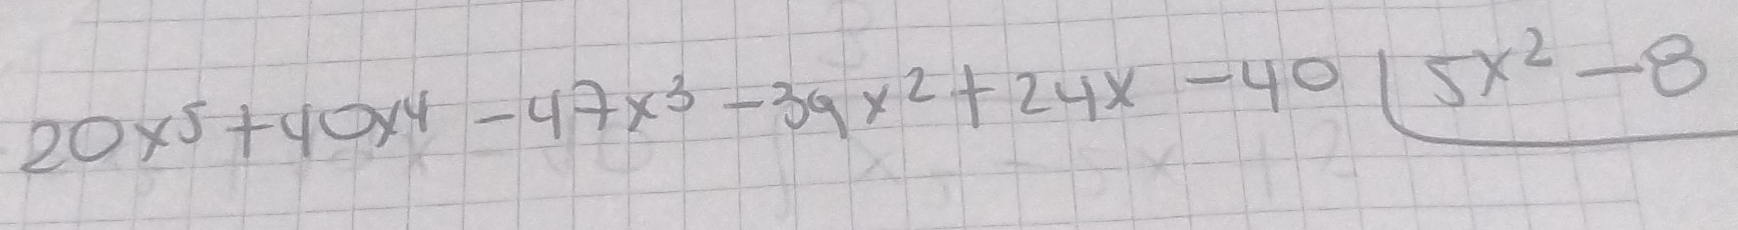 20x⁵ + 40x⁴ - 47x³ - 39x² + 24x - 40 | 5x² - 8